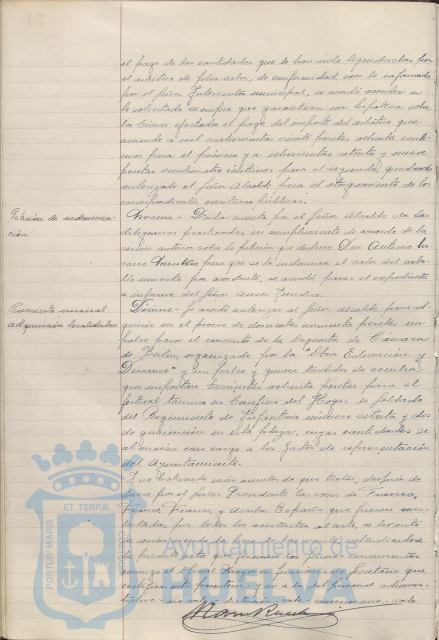 el pago de las cantidades que le han sido liquidadas por
el arbitrio de plus valía, de conformidad con lo informado
por el Señor Interventor municipal, se acordó acceder a
lo solicitado siempre que garanticen con hipoteca sobre
las fincas afectadas el pago del importe del arbitrio que
asciende a mil cuatrocientas veinte pesetas ochenta centi-
mos para el primero y a setecientas setenta y nueve
pesetas céntimos para el segundo, quedando
autorizado el Señor Alcalde para el otorgamiento de las
correspondientes escrituras públicas.
Petición de indemniza-
ción.
Noveno.- Dada cuenta por el Señor Alcalde de las
diligencias practicadas en cumplimiento de acuerdo de la
sesión anterior sobre la petición que deduce Don Antonio
para que se le indemnice el valor del caba-
llo muerto por accidente, se acordó pasar el expediente
a informe del Señor Asesor Jurídico.
Concierto musical
adquisición localidades
Décimo.- Se acordó autorizar al Señor Alcalde para ad-
quirir en el precio de doscientas cincuenta pesetas un
palco para el concierto de la Orquesta de Cámara
de Berlín, organizado por la "Obra Educación y
Descanso" y un palco y quince tendidos de sombra
que importan trescientas ochenta pesetas para el
festival taurino en beneficio del Hogar del Soldado
del Regimiento de Infantería número setenta y dos
de guarnición en esta plaza, cuyas cantidades se
abonarán con cargo a los Gastos de representación
del Ayuntamiento.
Y no habiendo más asuntos de que tratar, después de
darse por el Señor Presidente las voces de Franco,
Franco, Franco, y Arriba España que fueron con-
testadas por todos los asistentes al acto, se levantó
la sesión siendo las de las extendiéndose
la presente acta que firman los señores concurrentes
conmigo el Secretario que
certifico
ET TERRÆ
PORTUS MARIS
CUSTODIA
Ayuntamiento de
HUELVA